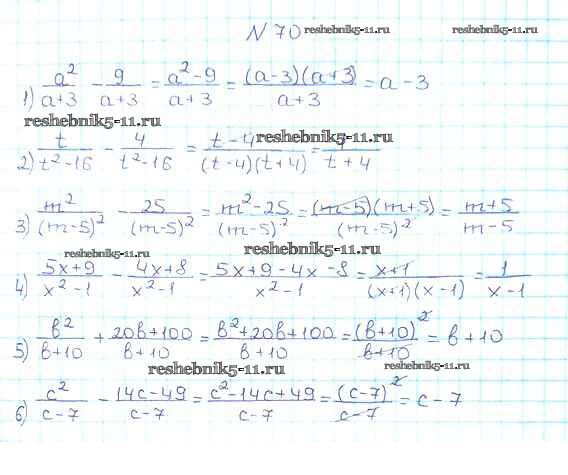 № 70 reshebnik5-11.ru reshebnik5-11.ru
1) a²/(a+3) - 9/(a+3) = (a²-9)/(a+3) = (a-3)(a+3)/(a+3) = a-3
reshebnik5-11.ru
2) t/(t²-16) - 4/(t²-16) = (t-4)/((t-4)(t+4)) = 1/(t+4)
reshebnik5-11.ru
3) m²/(m-5)² - 25/(m-5)² = (m²-25)/(m-5)² = (m-5)(m+5)/(m-5)² = (m+5)/(m-5)
reshebnik5-11.ru reshebnik5-11.ru
4) (5x+9)/(x²-1) - (4x+8)/(x²-1) = (5x+9-4x-8)/(x²-1) = (x+1)/((x+1)(x-1)) = 1/(x-1)
5) b²/(b+10) + (20b+100)/(b+10) = (b²+20b+100)/(b+10) = (b+10)²/(b+10) = b+10
reshebnik5-11.ru reshebnik5-11.ru
6) c²/(c-7) - (14c-49)/(c-7) = (c²-14c+49)/(c-7) = (c-7)²/(c-7) = c-7